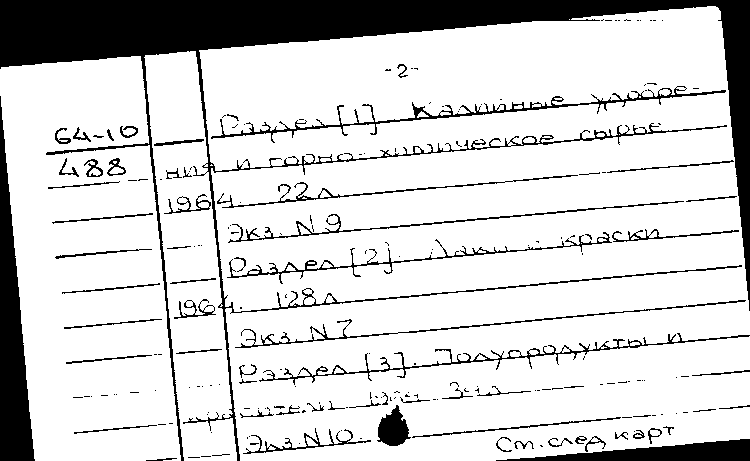 -2-
64-10
488
Раздел [1] Калийные удобре-
ния и горно-химическое сырье
1964. 22л.
Экз. N9
Раздел [2]. Лаки и краски
1964. 128л
Экз. N7
Раздел [3]. Полупродукты и
красители 1964 34л
Экз. N10.
Ст. след карт